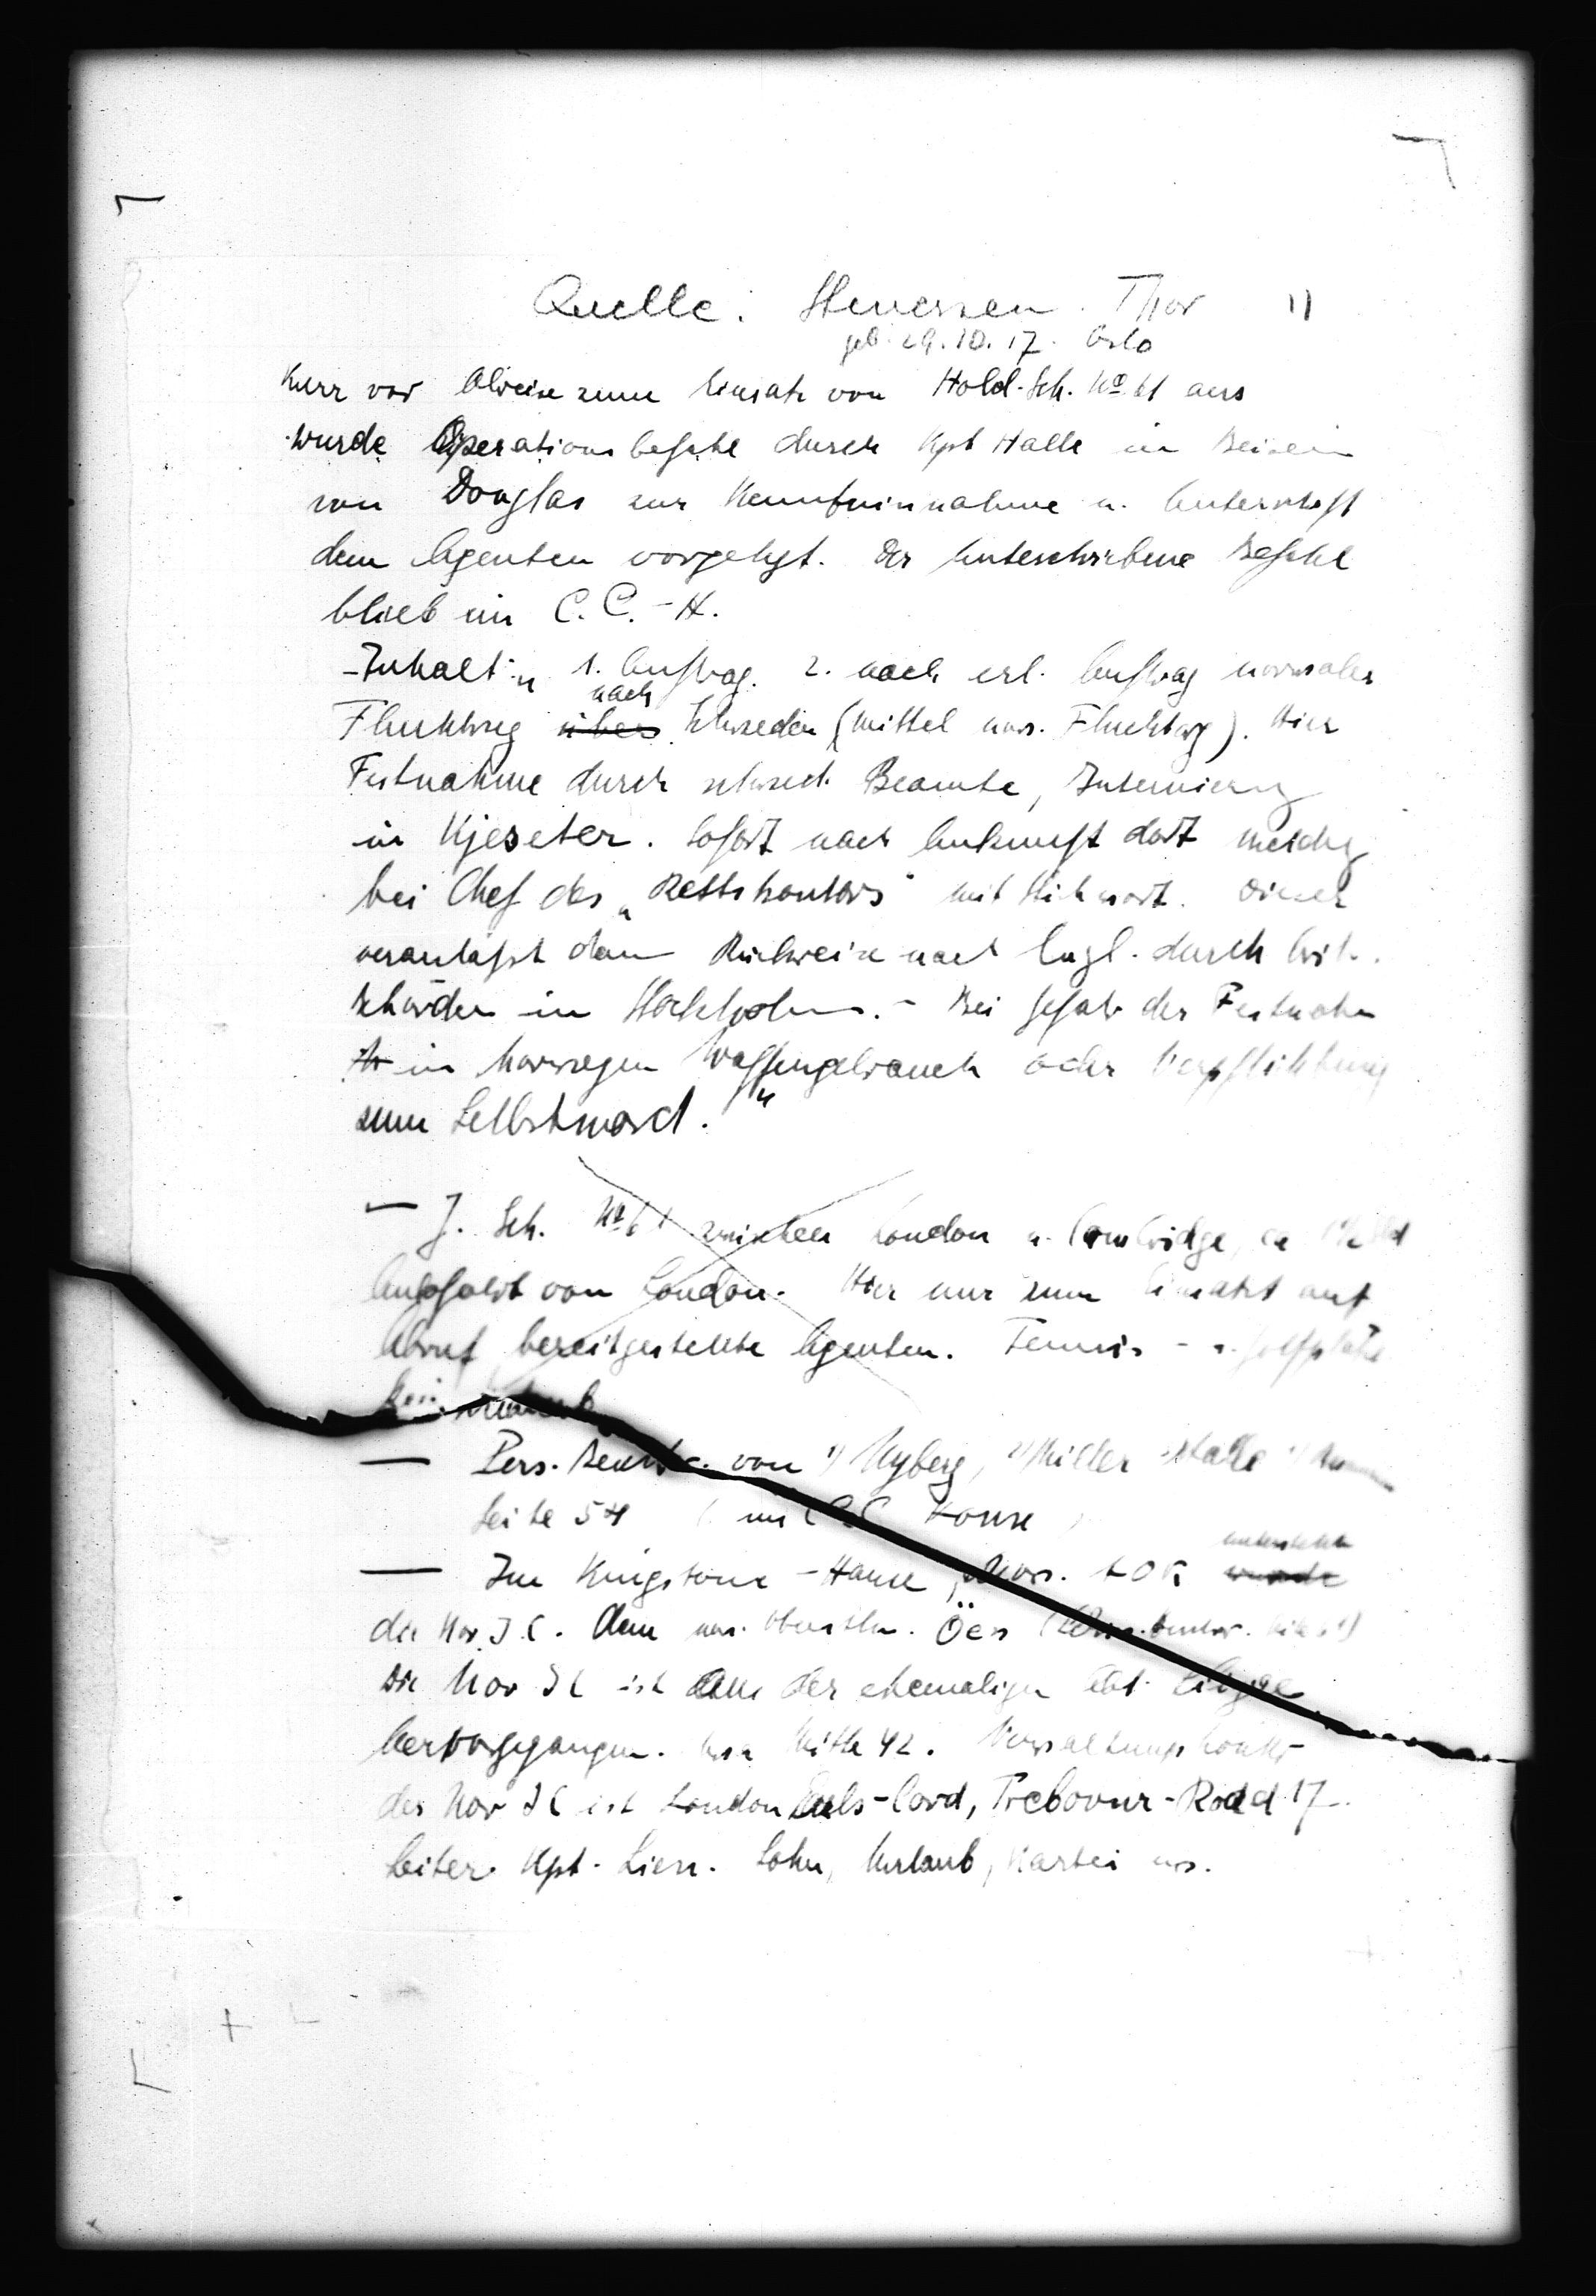 Quelle: Stenersen Thor 1)
geb. 29.10.17. Oslo
Kurz vor Abreise zum Einsatz von Hold-Sch. No 61 aus
wurde Operationsbefehl durch Kpt Halle in Beisein
von Douglas zur Kenntnisnahme u. Unterschrift
dem Agenten vorgelegt. Der unterschriebene Befehl
blieb im C.C.-H.
Inhalt: „ 1. Auftrag. 2. nach erl. Auftrag normaler
nach
Fluchtweg über Schweden (Mittel norw. Fluchtorg). Hier
Festnahme durch schwed. Beamte, Internierung
in Kjeseter. Sofort nach Ankunft dort Meldg
bei Chef des „Rettskontors" mit Stichwort. Dieser
veranlaßt dann Rückreise nach Engl. durch brit.
Behörden in Stockholm. - Bei Gefahr der Festnahme
in Norwegen Waffengebrauch oder Verpflichtung
zum Selbstmord. "
— J. Sch. No 61 zwischen London u. Cambridge, ca
von London. Hier nur zum Einsatz auf
Abruf bereitgestellte Agenten. Tennis - u. Golfplätze
— Pers. von 1) Nyberg, 2) Miller Halle
Seite 54 ( im C.C House )
unterstellt
— Im Kingstone - House, Norw. wurde
die Nor. I.C. dem nor. Öen
Die Nor IC ist aus der ehemaligen Abt. Linge
hervorgegangen. Mitte 42.
der Nor IC ist London Earls-Cord, Trebovur-Roadd 17.
Leiter Kpt. Lien. Lohn, Urlaub, Kartei usw.